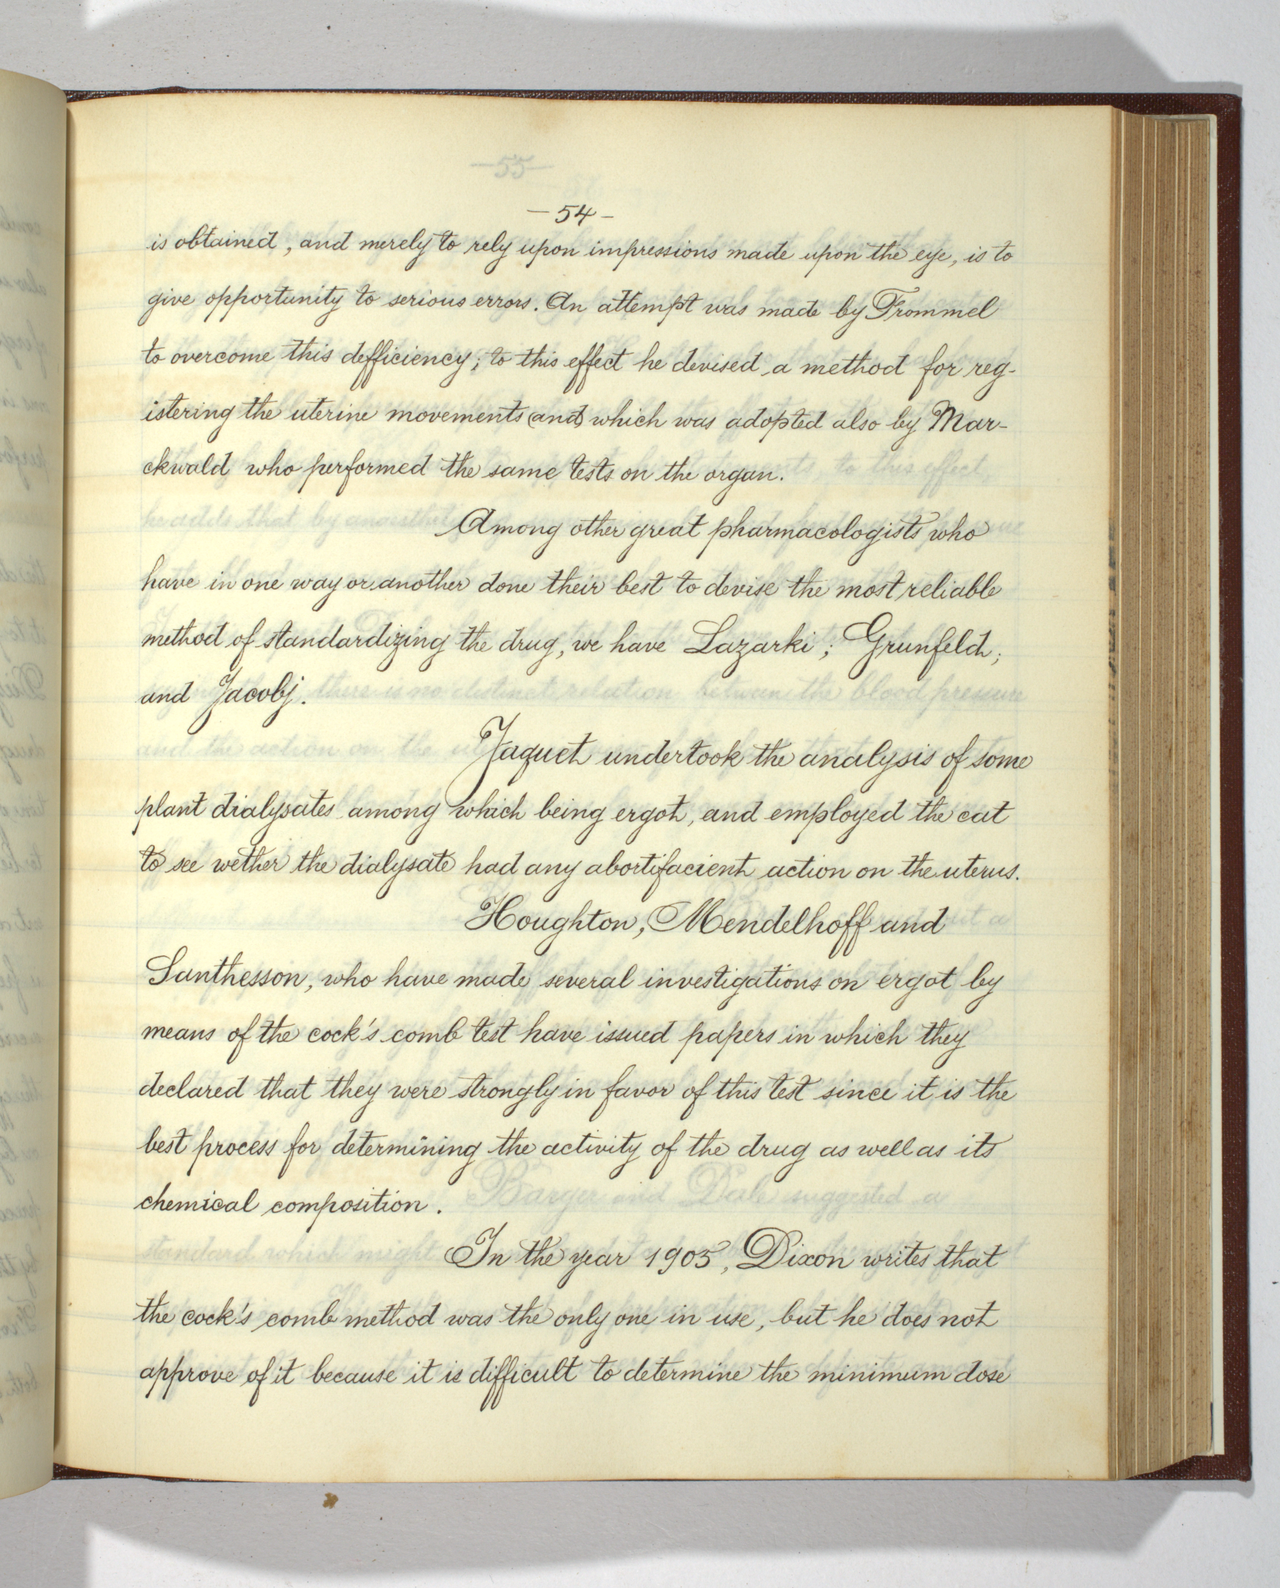 -54-
is obtained, and merely to rely upon impressions made upon the eye, is to
give opportunity to serious errors. An attempt was made by Frommel
to overcome this defficiency; to this effect he devised a method for reg-
istering the uterine movements (and) which was adopted also by Mar-
ckwald who performed the same tests on the organ.
Among other great pharmacologists who
have in one way or another done their best to devise the most reliable
method of standardizing the drug, we have Lazarki; Grunfeld;
and Jacobj.
Jaquet undertook the analysis of some
plant dialysates among which being ergot, and employed the cat
to see wether the dialysate had any abortifacient action on the uterus.
Houghton, Mendelhoff and
Santhesson, who have made several investigations on ergot by
means of the cock's comb test have issued papers in which they
declared that they were strongly in favor of this test since it is the
best process for determining the activity of the drug as well as its
chemical composition.
In the year 1905, Dixon writes that
the cock's comb method was the only one in use, but he does not
approve of it because it is difficult to determine the minimum dose